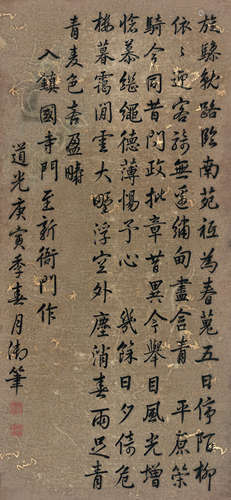 旌驂軟路臨南苑祗為春蒐五日停陌柳
依〻迎客騎無邊緬甸盡含青　平原策
騎今同昔問政批章昔異今舉目風光增
愴慕繼繩德薄惕予心　幾餘日夕倚危
樓暮靄間雲大野浮空外塵消春雨足青
青麥色喜盈疇
入鎮國寺門至新衙門作
道光庚寅季春月御筆